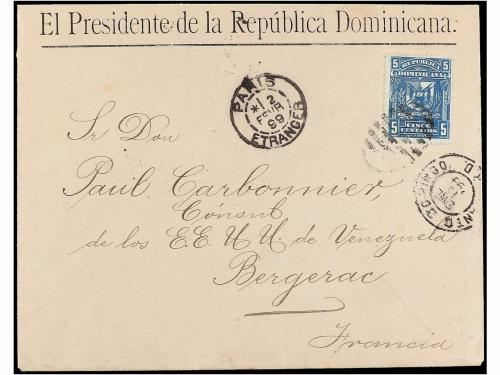 El Presidente de la República Dominicana.
PARIS
*1 2
FEVR
99
ETRANGER
5 REPUBLICA 5
DOMINICANA
5 CINCO 5
CENTAVOS
Sr Don
Paul Carbonnier,
Cónsul
de los E.E. U.U. de Venezuela
Bergerac
Francia